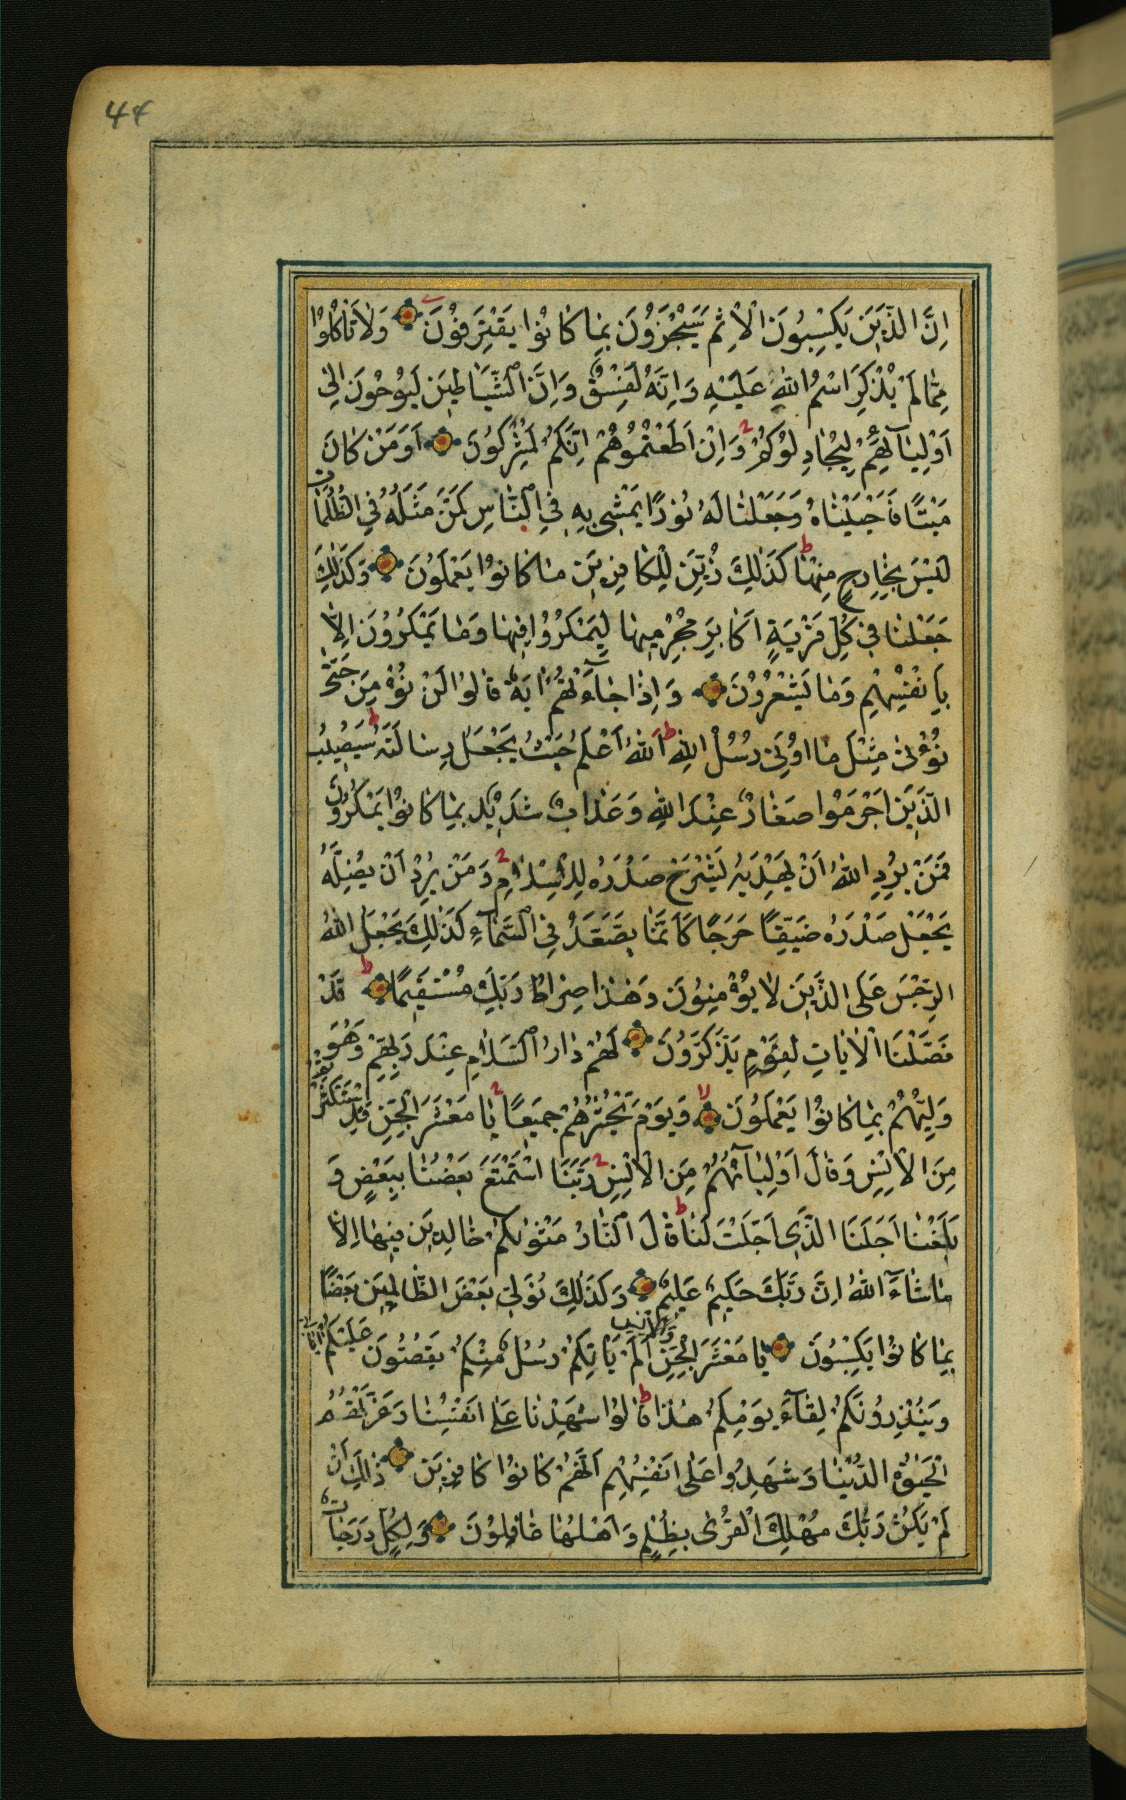 44
اِنَّ الَّذِينَ يَكْسِبُونَ الْاِثْمَ سَيُجْزَوْنَ بِمٰا كٰانُوا يَقْتَرِفُونَ وَلٰا تَاْكُلُوا
مِمّٰا لَمْ يُذْكَرِ اسْمُ اللّٰهِ عَلَيْهِ وَاِنَّهُ لَفِسْقٌ وَاِنَّ الشَّيٰاطِينَ لَيُوحُونَ اِلىٰ
اَوْلِيٰآئِهِمْ لِيُجٰادِلُوكُمْ وَاِنْ اَطَعْتُمُوهُمْ اِنَّكُمْ لَمُشْرِكُونَ اَوَمَنْ كٰانَ
مَيْتًا فَاَحْيَيْنٰاهُ وَجَعَلْنٰا لَهُ نُورًا يَمْشِي بِهِ فِي النّٰاسِ كَمَنْ مَثَلُهُ فِي الظُّلُمٰاتِ
لَيْسَ بِخٰارِجٍ مِنْهٰا كَذٰلِكَ زُيِّنَ لِلْكٰافِرِينَ مٰا كٰانُوا يَعْمَلُونَ وَكَذٰلِكَ
جَعَلْنٰا فِي كُلِّ قَرْيَةٍ اَكٰابِرَ مُجْرِمِيهٰا لِيَمْكُرُوا فِيهٰا وَمٰا يَمْكُرُونَ اِلّٰا
بِاَنْفُسِهِمْ وَمٰا يَشْعُرُونَ وَاِذٰا جٰآءَتْهُمْ اٰيَةٌ قٰالُوا لَنْ نُؤْمِنَ حَتّٰى
نُؤْتىٰ مِثْلَ مٰا اُوتِيَ رُسُلُ اللّٰهِ اَللّٰهُ اَعْلَمُ حَيْثُ يَجْعَلُ رِسٰالَتَهُ سَيُصِيبُ
الَّذِينَ اَجْرَمُوا صَغٰارٌ عِنْدَ اللّٰهِ وَعَذٰابٌ شَدِيدٌ بِمٰا كٰانُوا يَمْكُرُونَ
فَمَنْ يُرِدِ اللّٰهُ اَنْ يَهْدِيَهُ يَشْرَحْ صَدْرَهُ لِلْاِسْلٰامِ وَمَنْ يُرِدْ اَنْ يُضِلَّهُ
يَجْعَلْ صَدْرَهُ ضَيِّقًا حَرَجًا كَاَنَّمٰا يَصَّعَّدُ فِي السَّمٰآءِ كَذٰلِكَ يَجْعَلُ اللّٰهُ
الرِّجْسَ عَلَى الَّذِينَ لٰا يُؤْمِنُونَ وَهٰذٰا صِرٰاطُ رَبِّكَ مُسْتَقِيمًا قَدْ
فَصَّلْنَا الْاٰيٰاتِ لِقَوْمٍ يَذَّكَّرُونَ لَهُمْ دٰارُ السَّلٰامِ عِنْدَ رَبِّهِمْ وَهُوَ
وَلِيُّهُمْ بِمٰا كٰانُوا يَعْمَلُونَ وَيَوْمَ نَحْشُرُهُمْ جَمِيعًا يٰا مَعْشَرَ الْجِنِّ قَدِ اسْتَكْثَرْتُمْ
مِنَ الْاِنْسِ وَقٰالَ اَوْلِيٰآؤُهُمْ مِنَ الْاِنْسِ رَبَّنَا اسْتَمْتَعَ بَعْضُنٰا بِبَعْضٍ وَ
بَلَغْنٰا اَجَلَنَا الَّذِي اَجَّلْتَ لَنٰا قٰالَ النّٰارُ مَثْوٰىكُمْ خٰالِدِينَ فِيهٰا اِلّٰا
مٰا شٰآءَ اللّٰهُ اِنَّ رَبَّكَ حَكِيمٌ عَلِيمٌ وَكَذٰلِكَ نُوَلِّي بَعْضَ الظّٰالِمِينَ بَعْضًا
بِمٰا كٰانُوا يَكْسِبُونَ يٰا مَعْشَرَ الْجِنِّ وَالْاِنْسِ اَلَمْ يَاْتِكُمْ رُسُلٌ مِنْكُمْ يَقُصُّونَ عَلَيْكُمْ اٰيٰاتِي
وَيُنْذِرُونَكُمْ لِقٰآءَ يَوْمِكُمْ هٰذٰا قٰالُوا شَهِدْنٰا عَلىٰ اَنْفُسِنٰا وَغَرَّتْهُمُ
الْحَيٰوةُ الدُّنْيٰا وَشَهِدُوا عَلىٰ اَنْفُسِهِمْ اَنَّهُمْ كٰانُوا كٰافِرِينَ ذٰلِكَ اَنْ
لَمْ يَكُنْ رَبُّكَ مُهْلِكَ الْقُرىٰ بِظُلْمٍ وَاَهْلُهٰا غٰافِلُونَ وَلِكُلٍّ دَرَجٰاتٌ